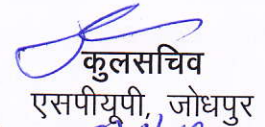 कुलसचिव
एसपीयूपी, जोधपुर